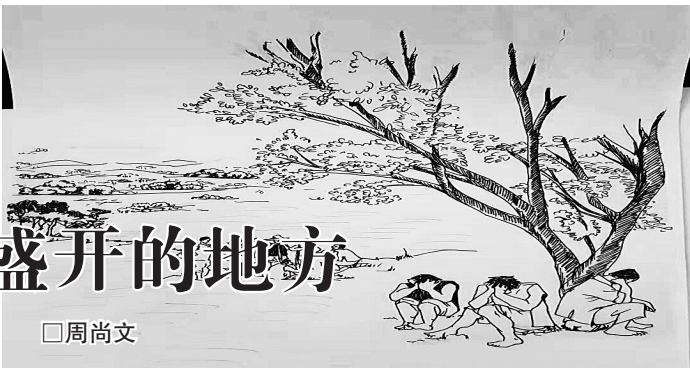 盛开的地方
□周尚文